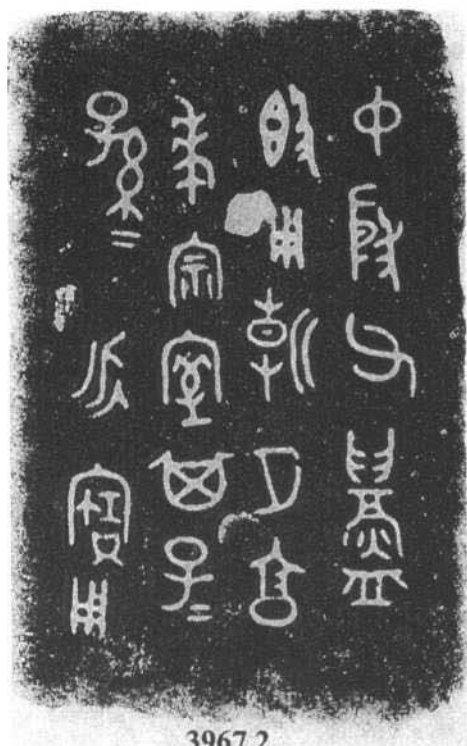 中殷父鑄
𣪘用朝夕亯
孝宗室其子＝
孫＝永寶用
3967.2